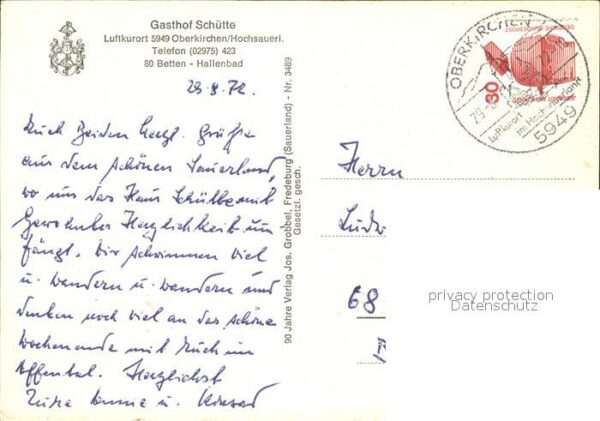 Gasthof Schütte
Luftkurort 5949 Oberkirchen/Hochsauerl.
Telefon (02975) 423
80 Betten - Hallenbad
Euch Beiden herzl. Grüße
aus dem schönen Sauerland,
wo uns das Haus Schütte mit
gewohnter Herzlichkeit um-
fängt. Wir schwimmen viel
u. wandern u. wandern und
denken noch viel an das schöne
Wochenende mit Euch im
Herzlichst
Eure u.
90 Jahre Verlag Jos. Grobbel, Fredeburg (Sauerland) - Nr. 3489
Gesetzl. gesch.
OBERKIRCHEN
Luftkurort
im Hochsauerland
5949
30
Herrn
Ludw
68
privacy protection
Datenschutz